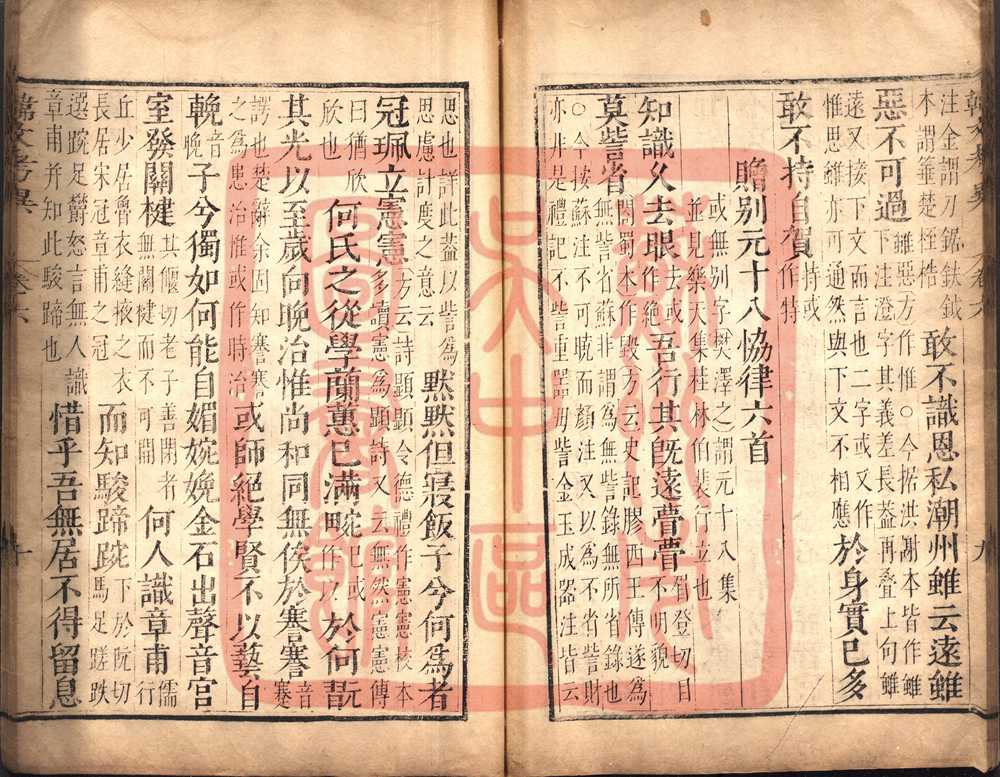 注金謂刀鋸鈇鉞
本謂箠楚桎梏
敢不識恩私潮州雖云遠雖
惡不可過
雖惡方作惟○今按洪謝本皆作雖
下注澄字其義差長蓋再疊上句雖
遠又接下文而言也一字或又作
惟思雖亦可通然與下文不相應
於身實已多
敢不持自賀
持或
作特
贈別元十八協律六首
或無別字樊澤之謂元十八集
並見樂天集桂林伯裴行立也
知識久去眼
去或
作絕
吾行其旣遠瞢瞢
眉登切目
不明貌
莫訾省
閣蜀本作毀方云史記膠西王傳遂爲
無訾省蘇非謂爲無訾錄無所省錄也
○今按蘇注不可曉而顏注又以爲不省訾財
亦非是禮記不訾重器毋訾金玉成器注皆云
思也詳此蓋以訾爲
思慮計度之意云
默默但寢飯子兮何爲者
冠珮立憲憲
方云詩顯顯令德禮作憲憲校本
多讀憲爲顯詩又云無然憲憲傳
曰猶欣
欣也
何氏之從學蘭蕙已滿畹
已或
作以
於何翫
其光以至歲向晚治惟尚和同無俟於謇謇
音
蹇
諤也楚辭余固知謇謇
之爲患治惟或作時冶
或師絕學賢不以藝自
輓
音
晚
子兮獨如何能自媚婉娩金石出聲音宮
室發關楗
其偃切老子善閉者
無關楗而不可開
何人識章甫
儒
行
丘少居魯衣縫掖之衣
長居宋冠章甫之冠
而知駿蹄踠
下於阮切
馬足蹉跌
選踠足鬱怒言無人識
章甫并知此駿蹄也
惜乎吾無居不得留息
韓文考異
卷六
九
十